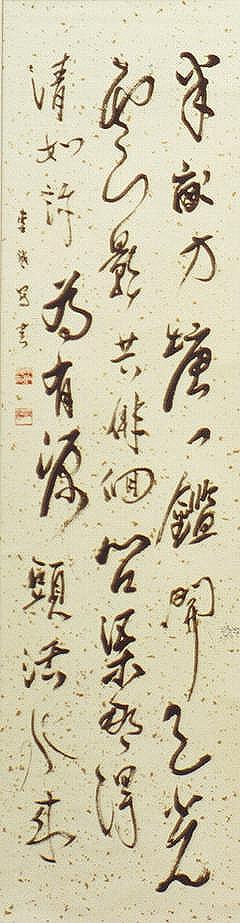 半畝方塘一鑑開天光
雲影共徘徊問渠那得
清如許為有源頭活水來